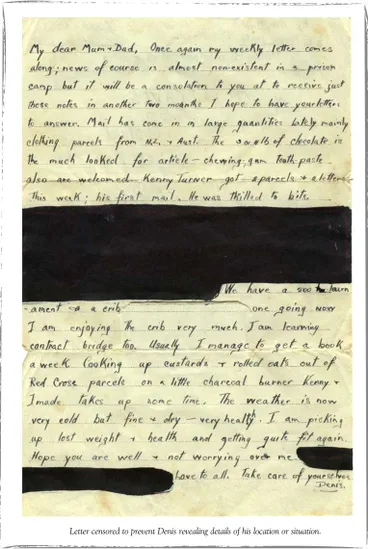 My dear Mum & Dad, Once again my weekly letter comes
along; news of course is almost non-existent in a prison
camp but it will be a consolation to you at to receive just
these notes in another two months I hope to have your letters
to answer. Mail has come in in large quantities lately mainly
clothing parcels from N.Z. & Aust. The lb of chocolate is
the much looked for article - chewing gum tooth-paste
also are welcomed. Kenny Turner got parcels & letters
this week; his first mail. He was thrilled to bits.
We have a tourn
-ament & a crib one going now
I am enjoying the crib very much. I am learning
contract bridge too. Usually I manage to get a book
a week. Cooking up custards & rolled oats out of
Red Cross parcels on a little charcoal burner Kenny &
I made takes up some time. The weather is now
very cold but fine & dry - very healthy. I am picking
up lost weight & health and getting quite fit again.
Hope you are well & not worrying over me
love to all. Take care of yourselves
Denis.
Letter censored to prevent Denis revealing details of his location or situation.